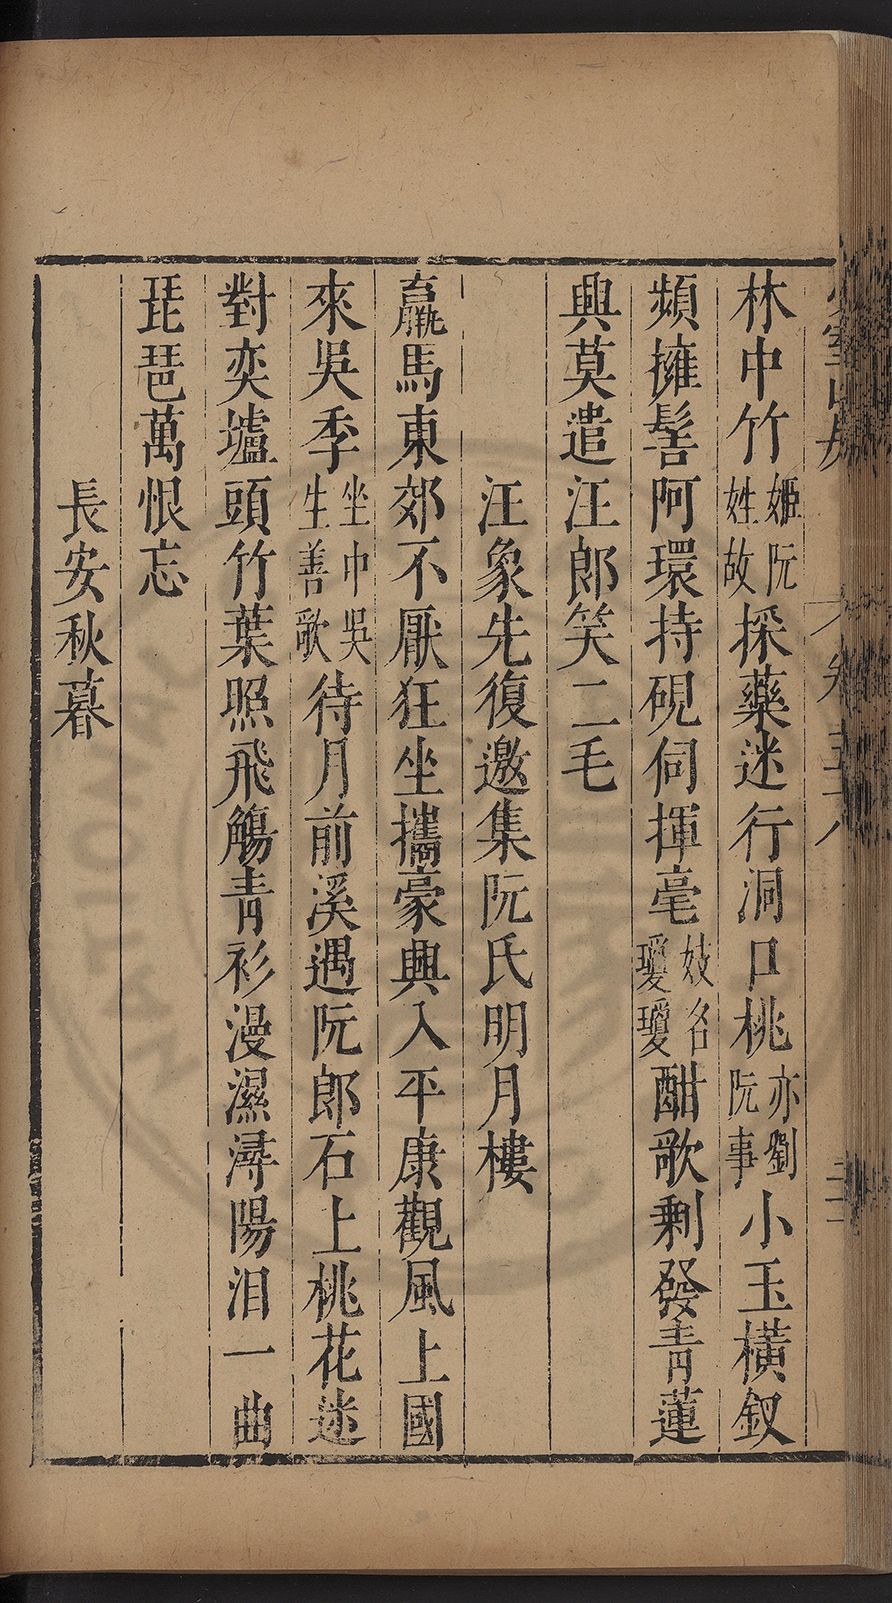 林中竹姬阮姓故採藥迷行洞口桃亦劉阮事小玉橫釵
頻擁髻阿環持硯伺揮毫妓名瓊瓊酣歌剩發青蓮
興莫遣汪郎笑二毛
汪象先復邀集阮氏明月樓
羸馬東郊不厭狂坐攜豪興入平康觀風上國
來吳季坐中吳生善歌待月前溪遇阮郎石上桃花迷
對奕壚頭竹葉照飛觴青衫漫濕潯陽泪一曲
琵琶萬恨忘
長安秋暮